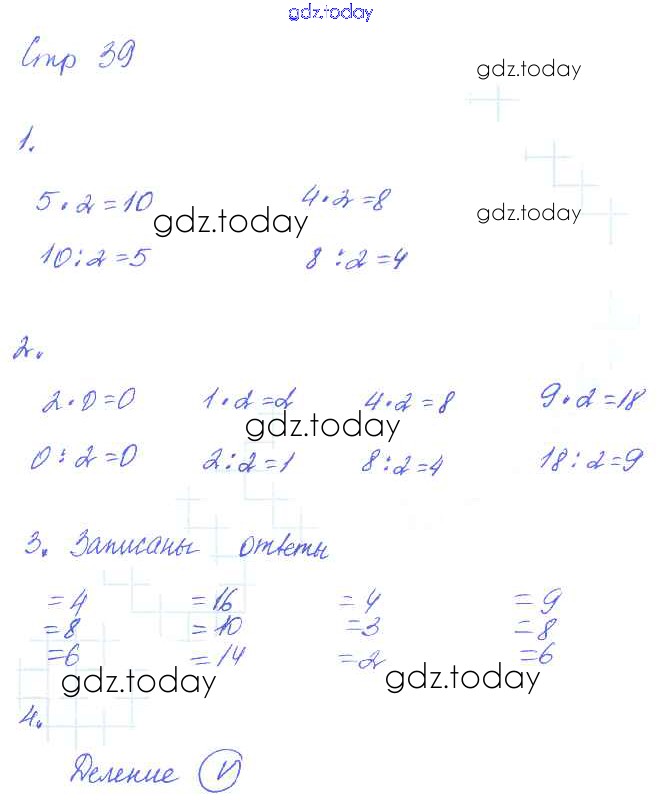 gdz.today
Стр 39
gdz.today
1.
5·2=10 4·2=8
gdz.today gdz.today
10:2=5 8:2=4
2.
2·0=0 1·2=2 4·2=8 9·2=18
gdz.today
0:2=0 2:2=1 8:2=4 18:2=9
3. Записаны ответы
=4 =16 =4 =9
=8 =10 =3 =8
=6 =14 =2 =6
gdz.today gdz.today
4.
Деление V